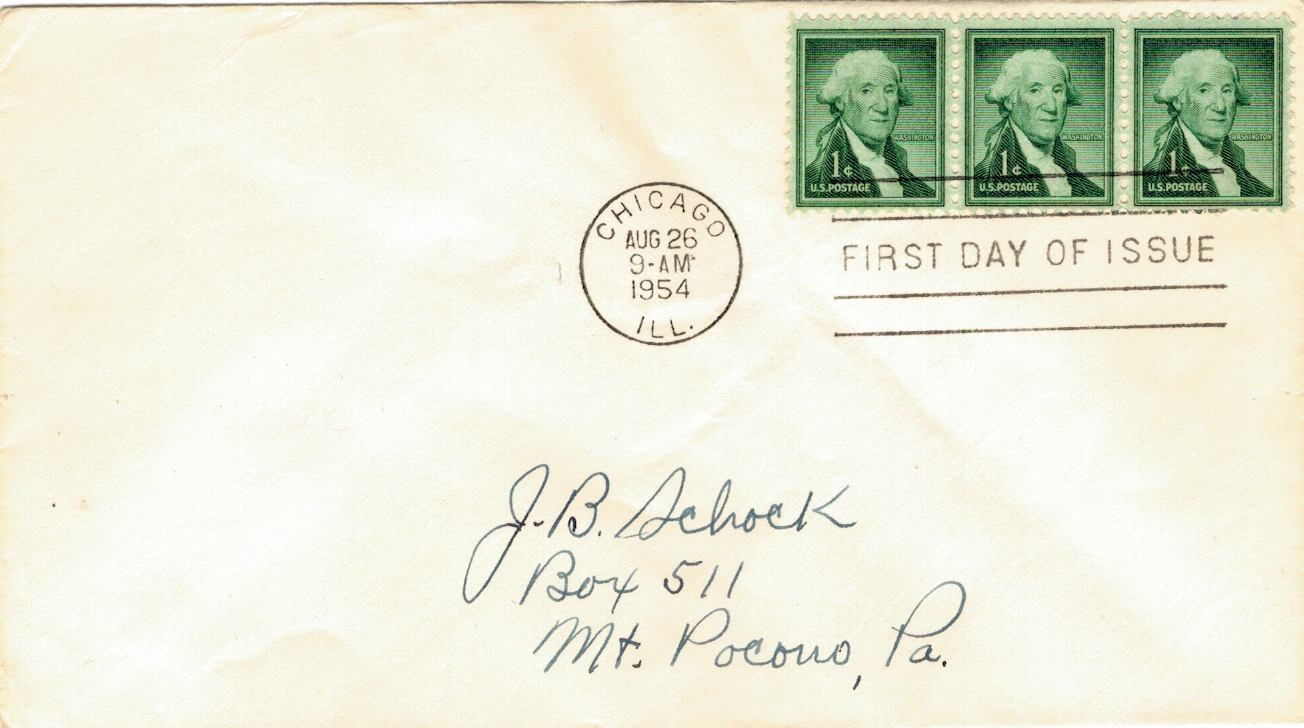 WASHINGTON
1¢
U.S.POSTAGE
WASHINGTON
1¢
U.S.POSTAGE
WASHINGTON
1¢
U.S.POSTAGE
CHICAGO
AUG 26
9-AM
1954
ILL.
FIRST DAY OF ISSUE
J.B. Schock
Box 511
Mt. Pocono, Pa.